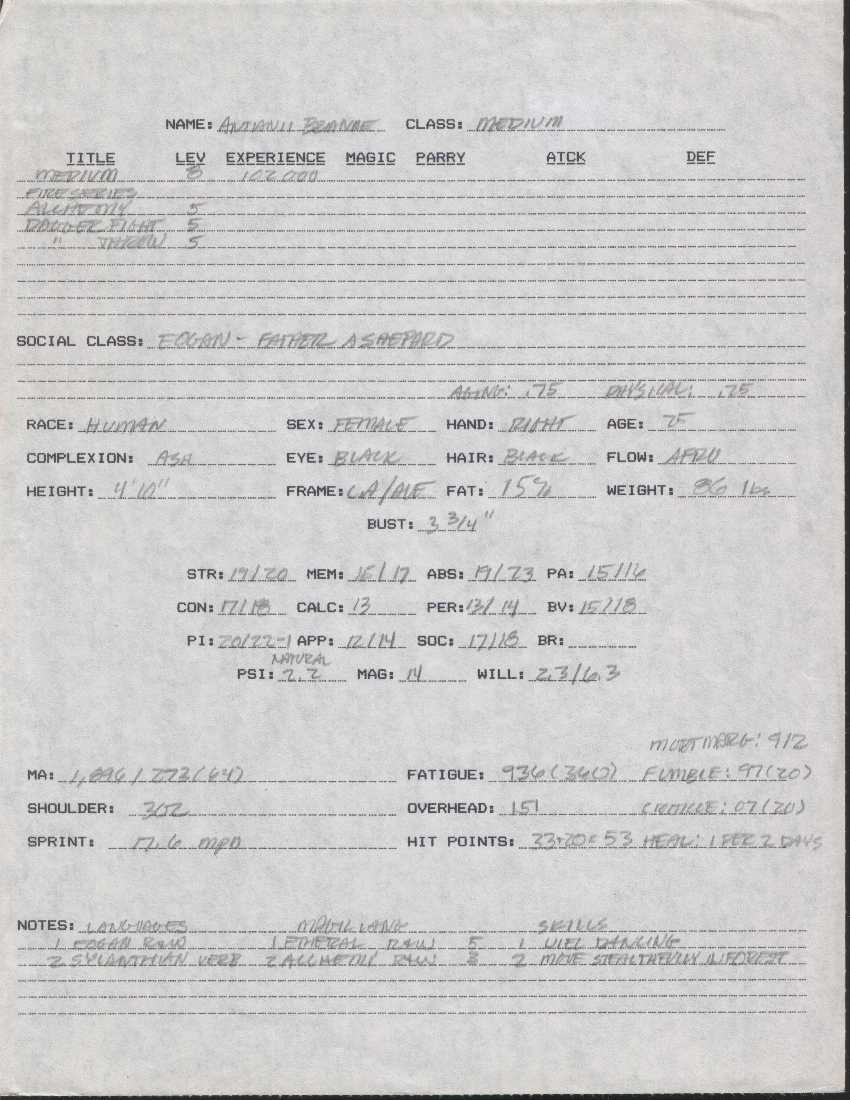 NAME: CLASS: MEDIUM
TITLE LEV EXPERIENCE MAGIC PARRY ATCK DEF
MEDIUM 8 102,000
FIRE SERIES
ALCHEMY 5
DAGGER FIGHT 5
" THROW 5
SOCIAL CLASS: EOGAN - FATHER A SHEPARD
AGING: .75 PHYSICAL: .75
RACE: HUMAN SEX: FEMALE HAND: RIGHT AGE:
COMPLEXION: ASH EYE: BLACK HAIR: BLACK FLOW: AFRO
HEIGHT: 4'10" FRAME: FAT: 15% WEIGHT: 86 lbs
BUST: 3 3/4"
STR: 19/20 MEM: ABS: 19/23 PA: 15/16
CON: 17/18 CALC: 13 PER: 13/14 BV: 15/18
PI: 20/22-1 APP: 12/14 SOC: 17/18 BR:
NATURAL
PSI: 2.2 MAG: 14 WILL: 2.3/6.3
MORT MARG: 912
MA: 1,896 / 273(64) FATIGUE: 936(360) FUMBLE: 97(20)
SHOULDER: 302 OVERHEAD: 151 07(20)
SPRINT: 17.6 mph HIT POINTS: 33+20=53 HEAL: 1 PER 2 DAYS
NOTES: LANGUAGES MAGIC LANG SKILLS
1 EOGAN R&W 1 ETHERAL R&W 5 1 VIEL DANCING
2 SYLANTHIAN VERB 2 ALCHEMY R&W 3 2 MOVE STEALTHFULLY IN FOREST